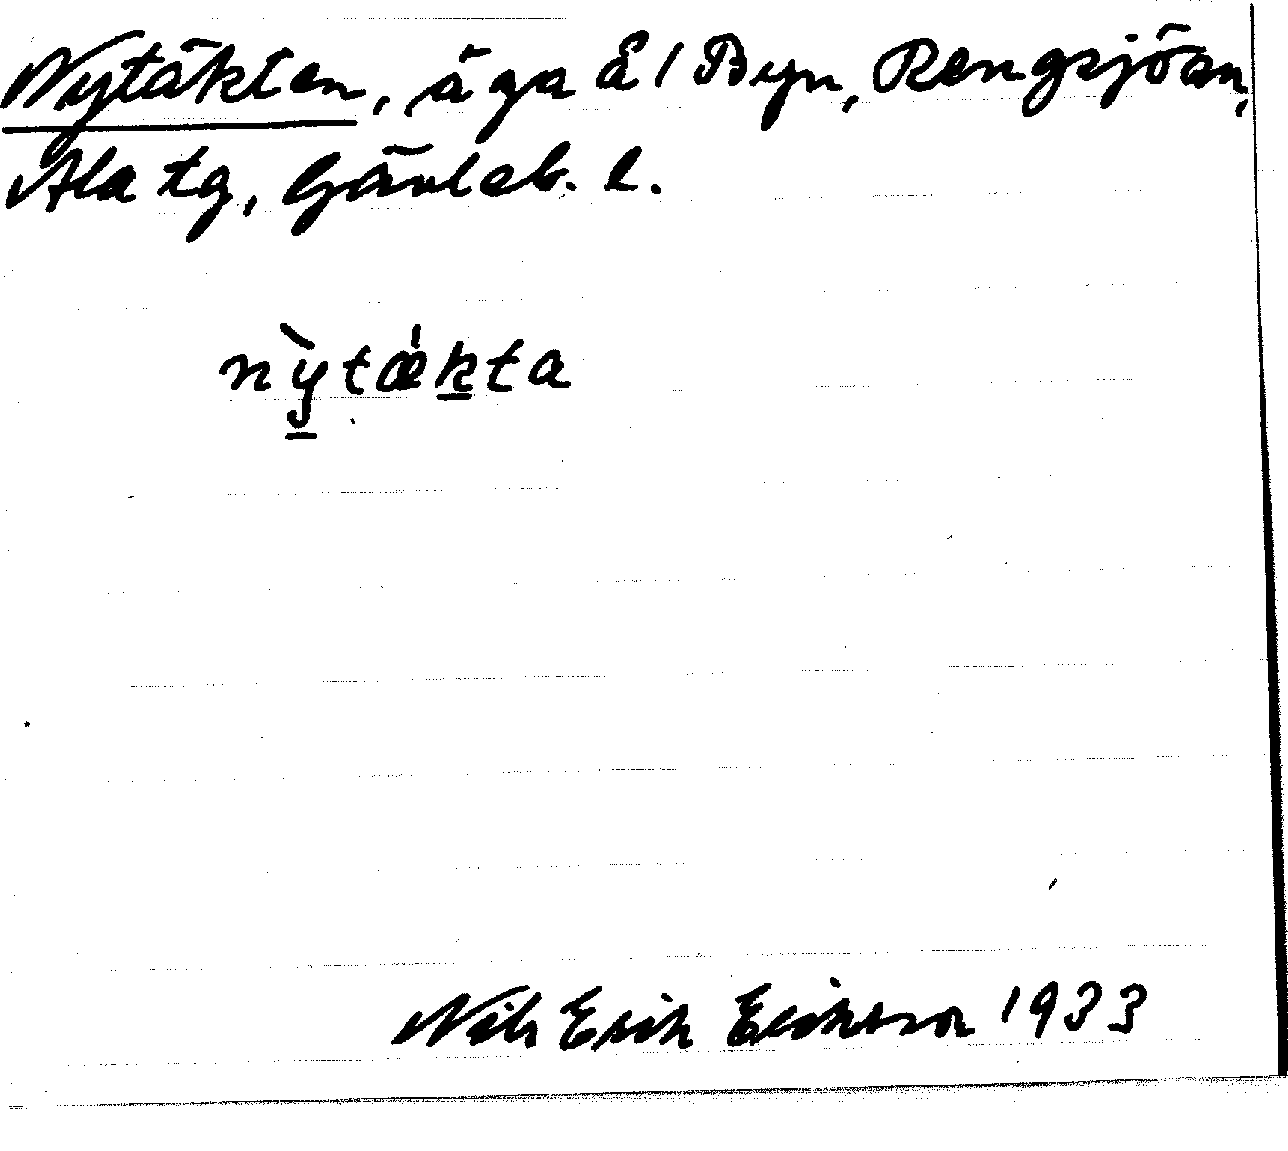 Nytäkten, äga å 1 Byn, Rengsjö sn,
Ala tg, Gävleb. l.
nỳtǽkta
Nils Erik Eriksson 1933